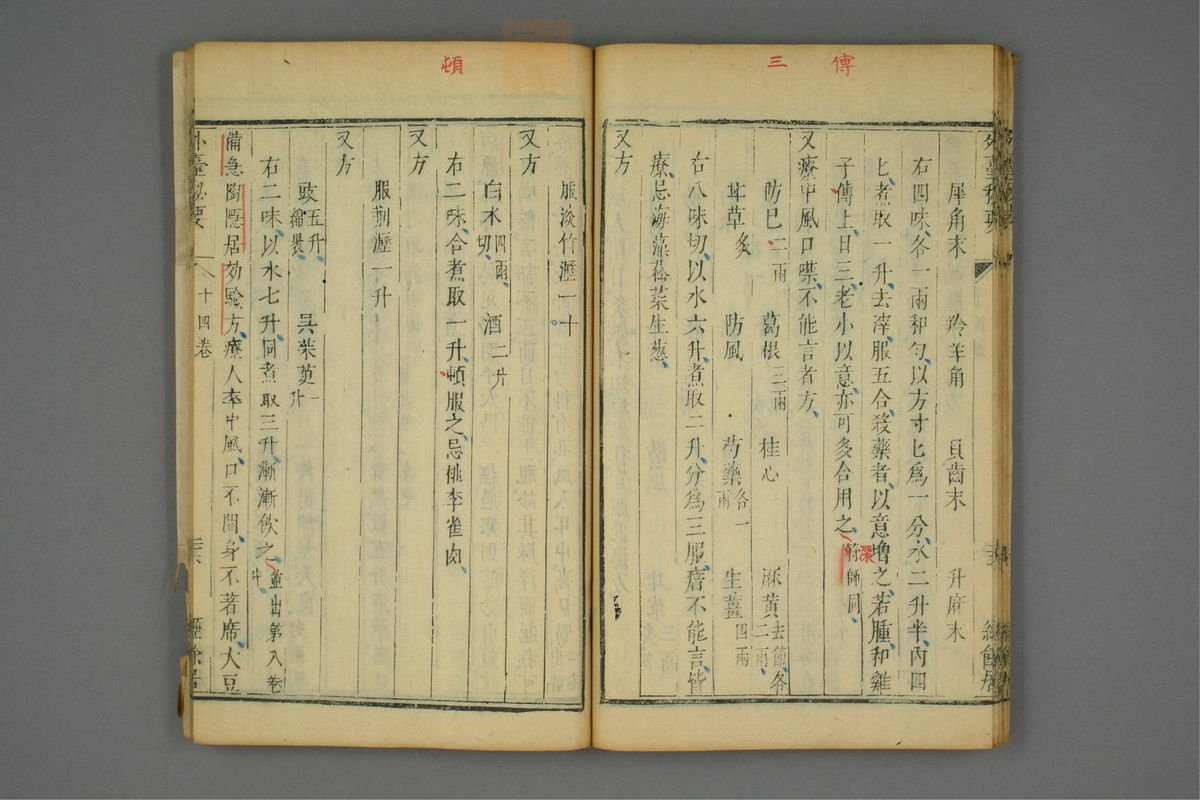 傳
三
犀角末 羚羊角 貝齒末 升麻末
右四味各一兩和勻以方寸匕爲一分水二升半內四
匕煮取一升去滓服五合殺藥者以意增之若腫和雞
子傳上日三老小以意亦可多合用之 深師同
又療中風口噤不能言者方
防巳二兩 葛根三兩 桂心 麻黃去節各二兩
甘草炙 防風 芍藥各一兩 生薑四兩
右八味切以水六升煮取二升分爲三服瘖不能言皆
療忌海藻菘菜生葱
又方
頓
服淡竹瀝一十
又方
白朮四兩切 酒二升
右二味合煮取一升頓服之忌桃李雀肉
又方
服荆瀝一升
又方
豉五升綿裹 吳茱萸一升
右二味以水七升同煮取三升漸漸飲之 並出第八卷中
備急 陶隱居效驗方療人卒中風口不開身不著席大豆
外臺秘要 十四卷 二六 經餘居